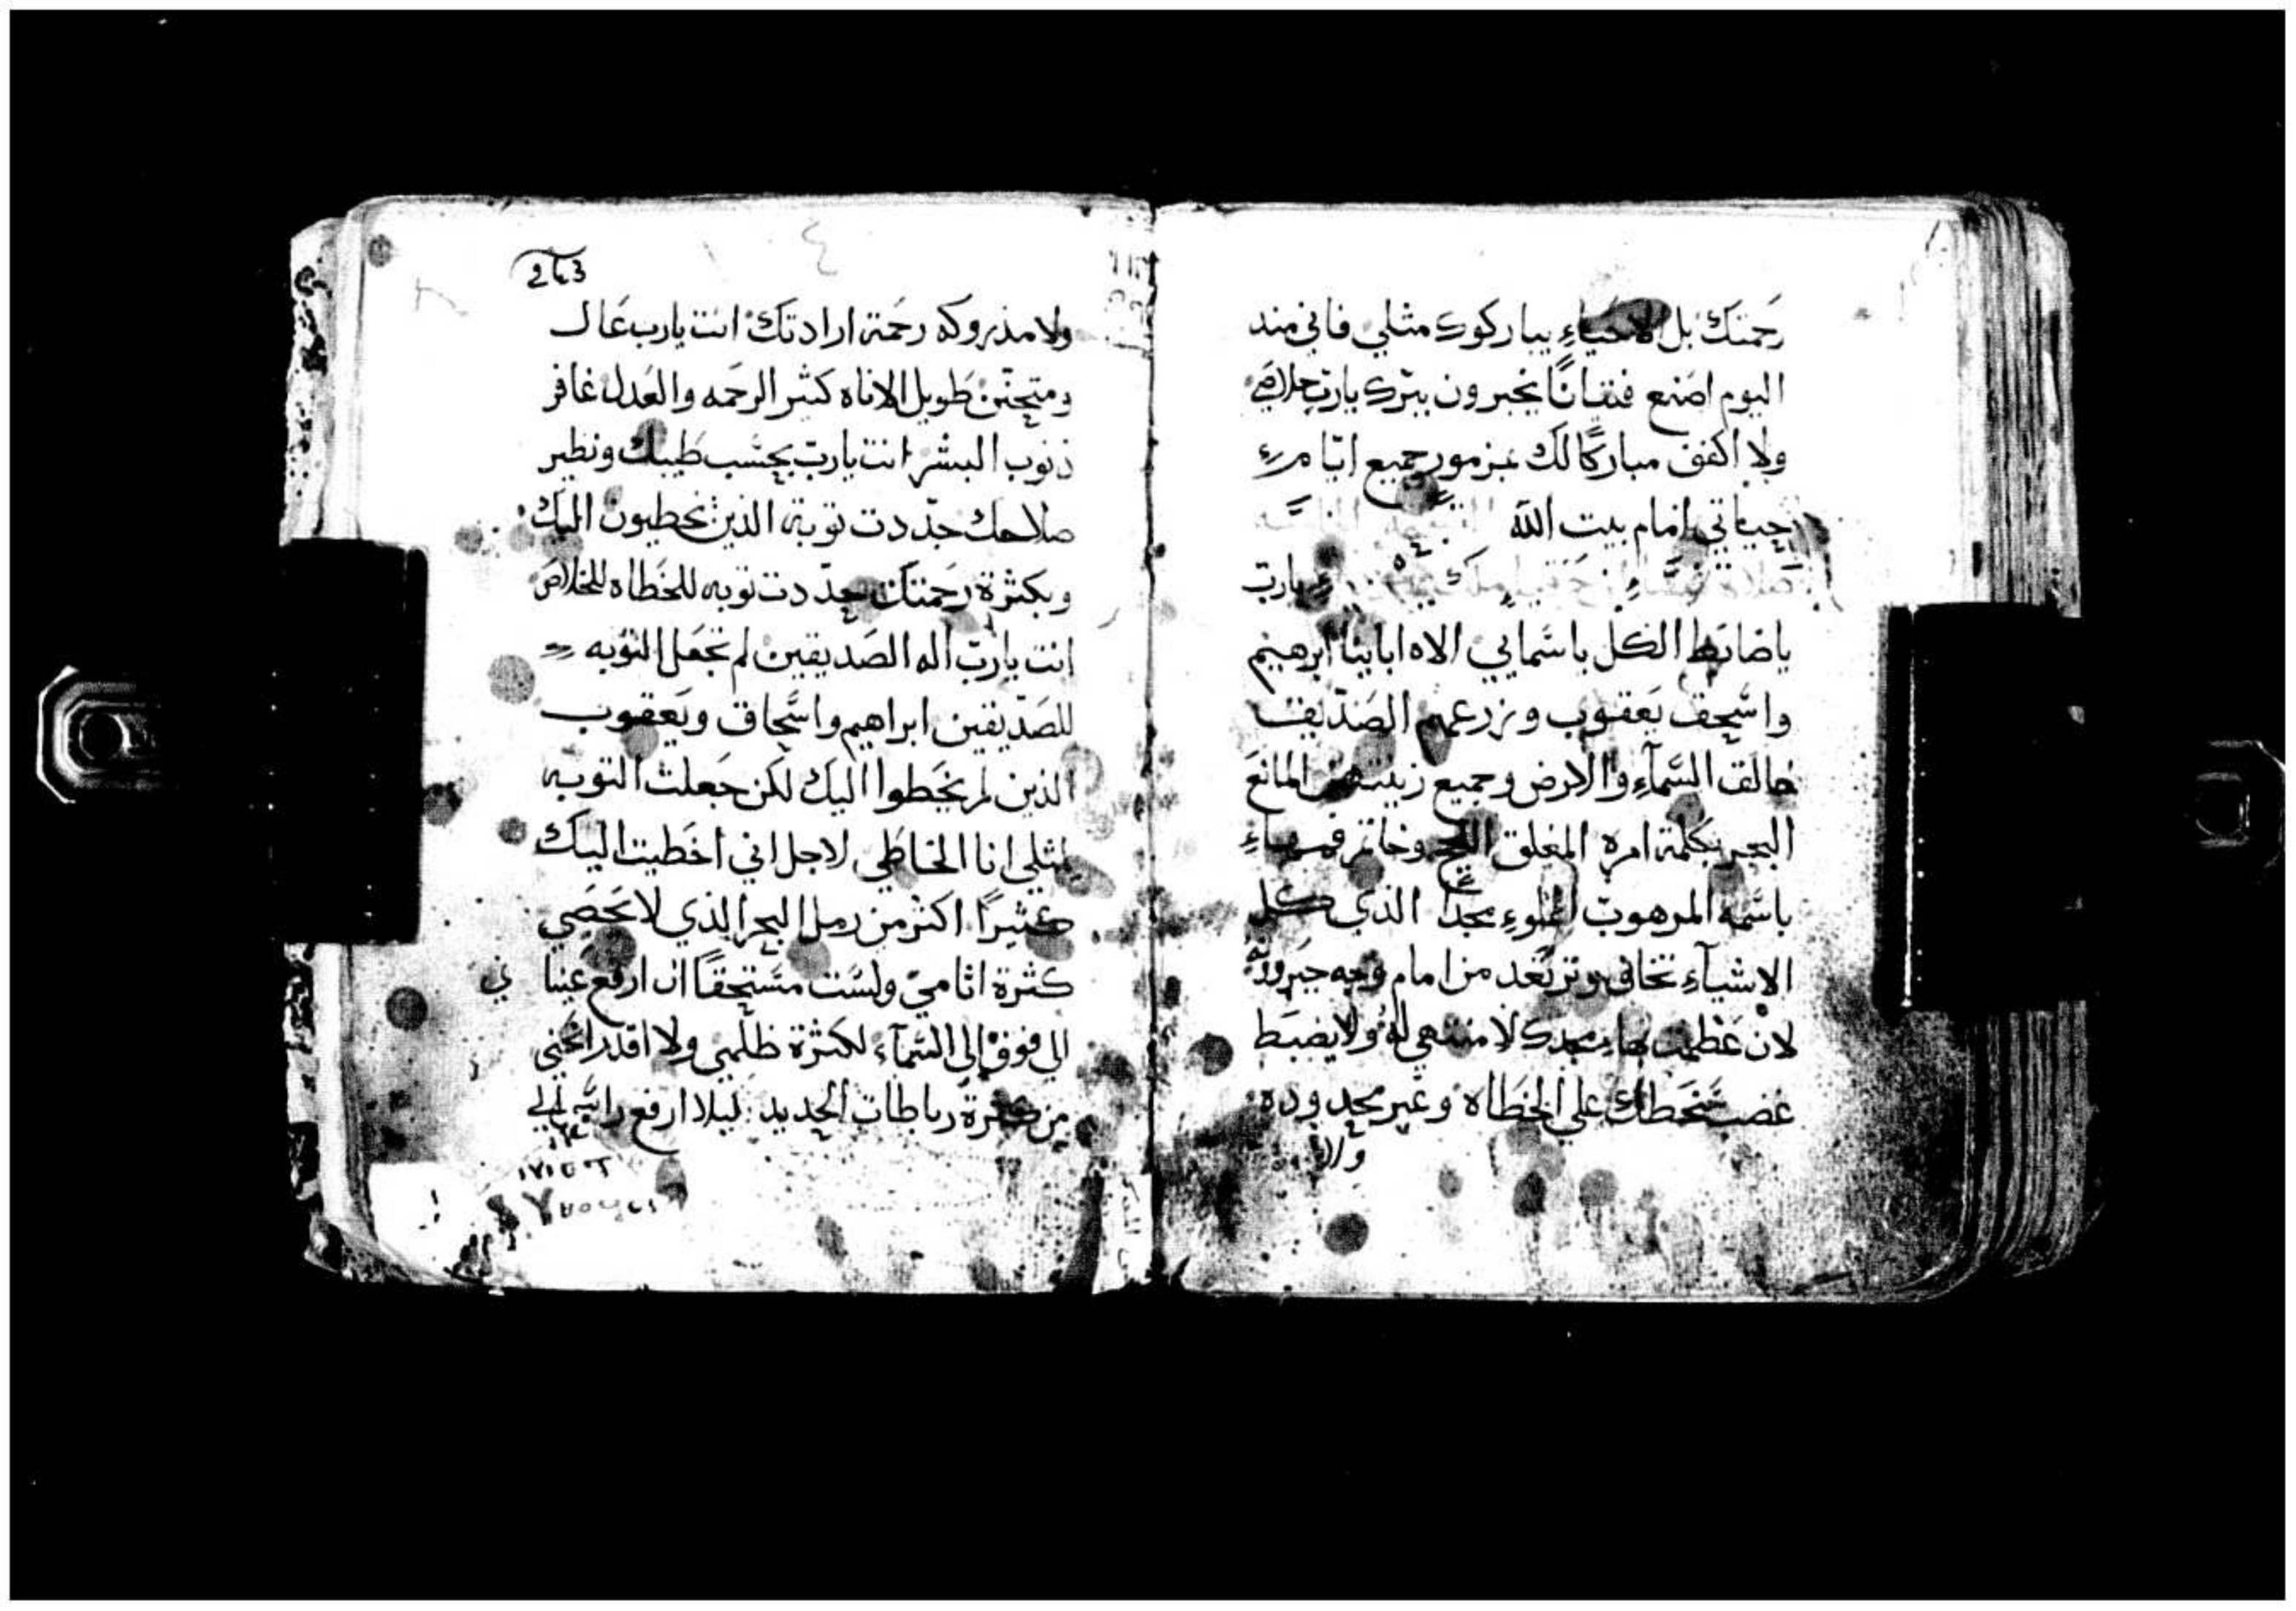 رحمتك بل الاحياء يباركوك مثلي فاني منذ
اليوم اصنع فتيانًا يخبرون ببرّك يارب خلاصي
ولا اكفف مباركًا لك بمزمور جميع ايّام
حياتي امام بيت الله
صلاة يارب
ياضابط الكل ياسمايي الاه ابايينا ابرهيم
واسحق يعقوب وزرعهم الصدّيق
خالق السمآء والارض وجميع زينتهن المانع
البحر بكلمة امره المغلق اللج وخاتم فمهاء
باسمه المرهوب المملوء مجدًا الذي كل
الاشيآء تخاف وترتعد من امام وجه جبروته
لان عظمت بها مجدك لا منتهي له ولا يضبط
غضب سخطك علي الخطاه وغير محدوده
ولا
243
ولا مدروكه رحمة ارادتك انت يارب عال
ومتحنن طويل الاناه كثير الرحمه والعدل غافر
ذنوب البشر انت يارب بحسب طيبك ونظير
صلاحك جدّدت توبة الذين يخطيون اليك
وبكثرة رحمتك جدّدت توبه للخطاه للخلاص
انت يارب اله الصديقين لم تجعل التوبه
للصدّيقين ابراهيم واسحاق ويعقوب
الذين لم يخطوا اليك لكن جعلت التوبه
لمثلي انا الخاطي لاجل اني اخطيت اليك
كثيرًا اكثر من رمل البحر الذي لا يحصي
كثرة اثامي ولست مستحقًا ان ارفع عينا ني
الي فوق الي السمآء لكثرة ظلمي ولا اقدر انحني
من كثرة رباطات الحديد ليلا ارفع راسي